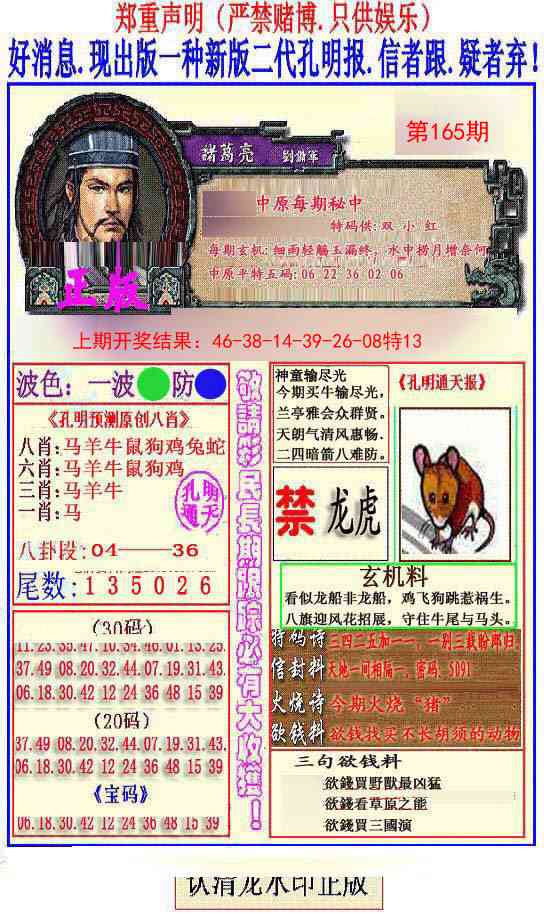 郑重声明（严禁赌博.只供娱乐）
好消息.现出版一种新版二代孔明报.信者跟.疑者弃!
第165期
諸葛亮 劉備軍
中原每期秘中
特码供: 双 小 红
每期玄机: 细雨轻觞玉漏终, 水中捞月增奈何
中原平特五码: 06 22 36 02 06
正版
上期开奖结果: 46-38-14-39-26-08特13
波色: 一波 防
《孔明预测原创八肖》
八肖: 马羊牛鼠狗鸡兔蛇
六肖: 马羊牛鼠狗鸡
三肖: 马羊牛
一肖: 马
孔明
通天
八卦段: 04——36
尾数: 1 3 5 0 2 6
(30码)
11.23.35.47.10.34.46.01.13.25.
37.49 08.20.32.44.07.19.31.43.
06.18.30.42 12 24 36 48 15 39
(20码)
37.49 08.20.32.44.07.19.31.43.
06.18.30.42 12 24 36 48 15 39
《宝码》
06.18.30.42 12 24 36 48 15 39
敬請彩民長期跟踪必有大收獲!
神童输尽光
今期买牛输尽光,
兰亭雅会众群贤。
天朗气清风惠畅.
二四暗箭八难防。
《孔明通天报》
禁 龙虎
玄机料
看似龙船非龙船, 鸡飞狗跳惹祸生。
八旗迎风花招展, 守住牛尾与马头。
特码诗 三四二五加一一、一别三载盼郎归
信封料 天地一间相隔一、密码、5091
火烧诗 今期火烧“猪”
欲钱料 欲钱我买不长胡须的动物
三句欲钱料
欲錢買野獸最凶猛
欲錢看草原之能
欲錢買三國演
认清龙水印正版